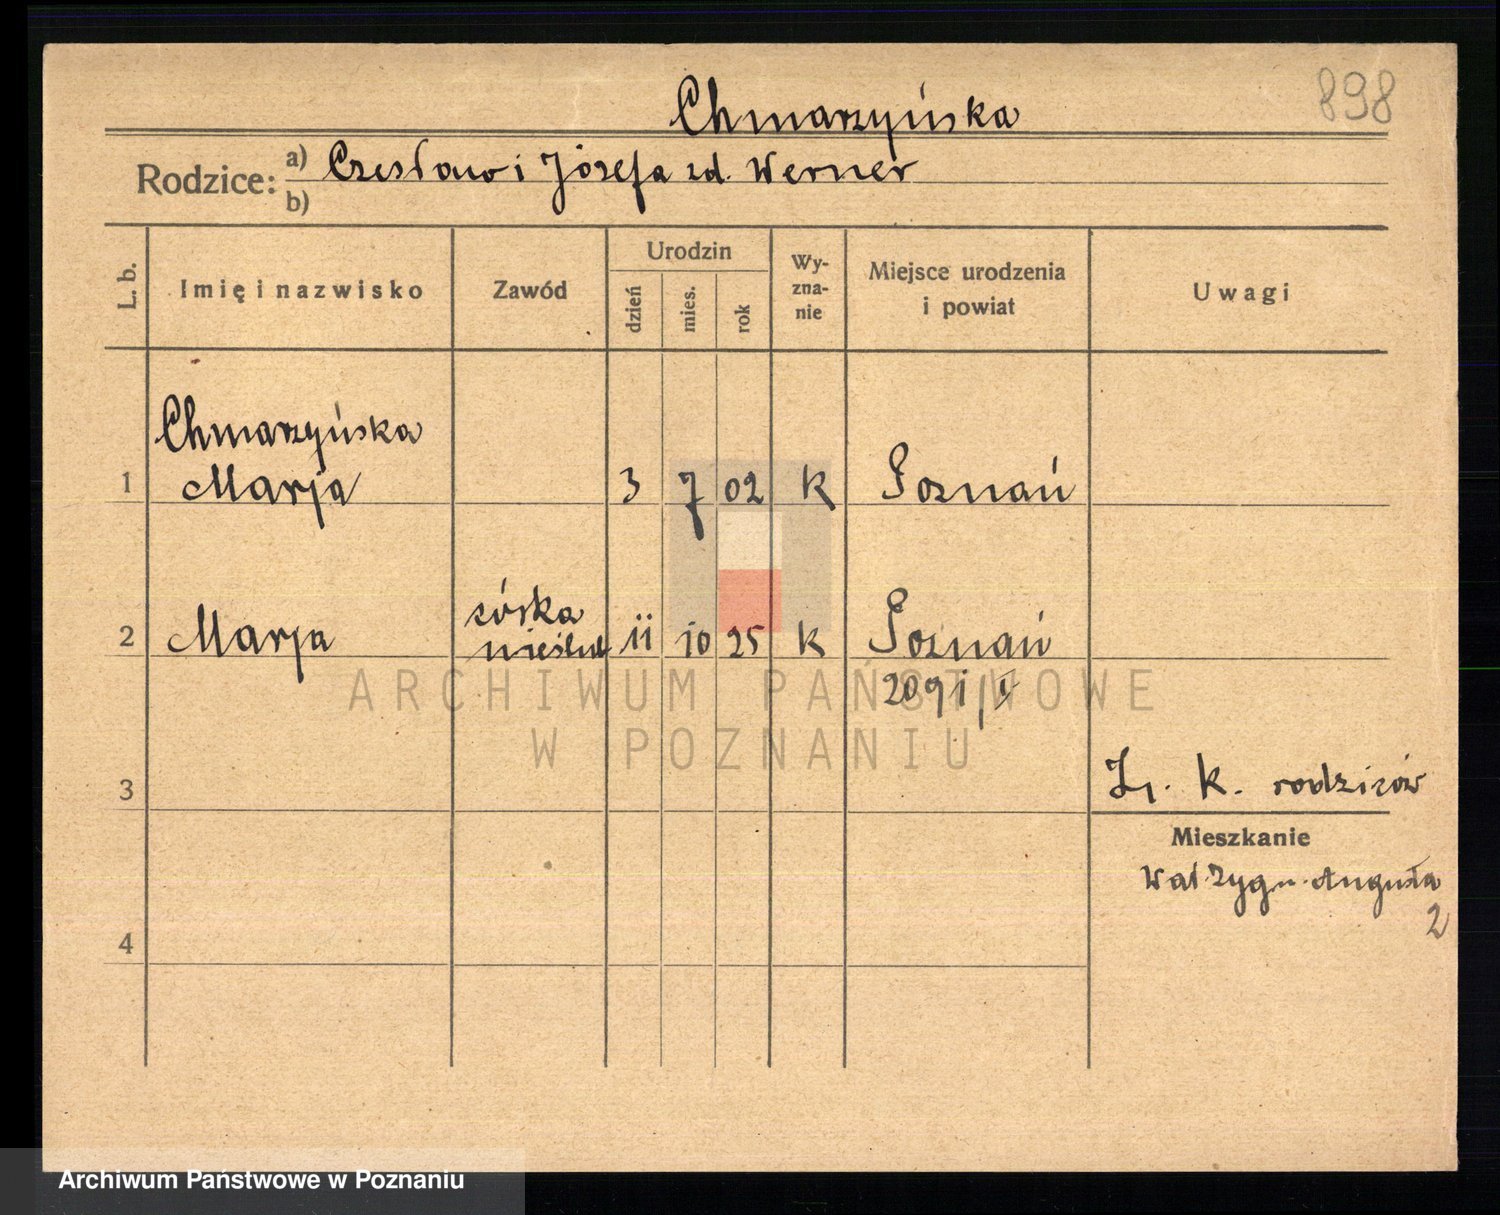 Chmarzyńska
898
Rodzice: a) Czesław i Józefa zd. Werner
b)
L. b.
Imię i nazwisko
Zawód
Urodzin
dzień
mies.
rok
Wy-
zna-
nie
Miejsce urodzenia
i powiat
Uwagi
Chmarzyńska
1 Marja 3 7 02 K Poznań
córka
2 Marja nieślub 11 10 25 K Poznań
2091/V
ARCHIWUM PAŃSTWOWE
W POZNANIU
3 k. rodziców
Mieszkanie
Wał Zygm. Augusta
2
4
Archiwum Państwowe w Poznaniu